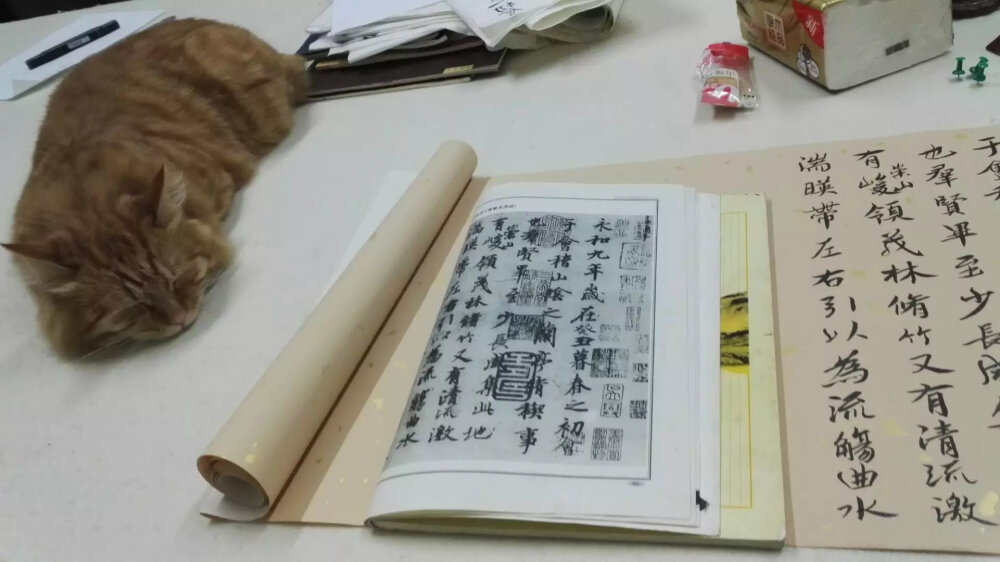 永和九年歲在癸丑暮春之初會
于會稽山陰之蘭亭脩稧事
也羣賢畢至少長咸集此地
有崇山峻領茂林脩竹又有清流激
湍暎帶左右引以為流觴曲水
于會
也羣賢畢至少長咸
有崇山峻領茂林脩竹又有清流激
湍暎帶左右引以為流觴曲水